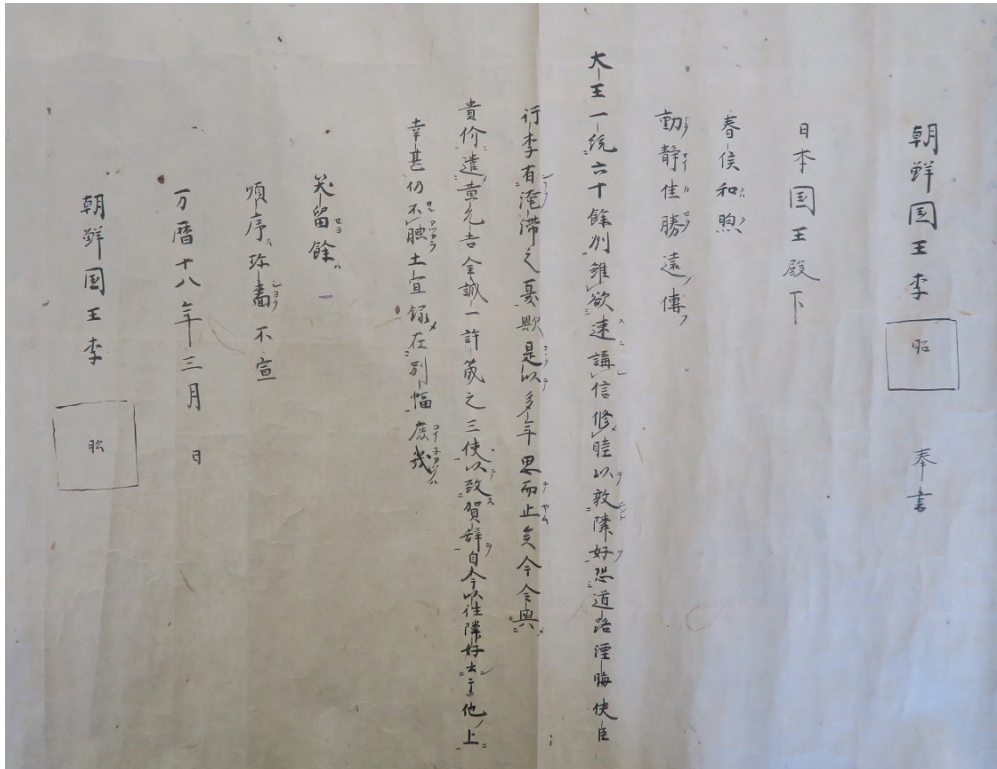 朝鮮国王李 昭 奉書
日本国王殿下
春侯和煦
動静佳勝遠傳
大王一統六十餘州雖欲速講信修睦以敦隣好恐道路湮晦使臣
行李有淹滞之憂歟是以多年思而止矣今令與
貴价遣黄允吉金誠一許筬之三使以致賀辞自今以往隣好出于他上
幸甚仍不腆土宜録在別幅庶幾
笑留餘ハ
順序珎嗇不宣
万暦十八年三月 日
朝鮮国王李 昭